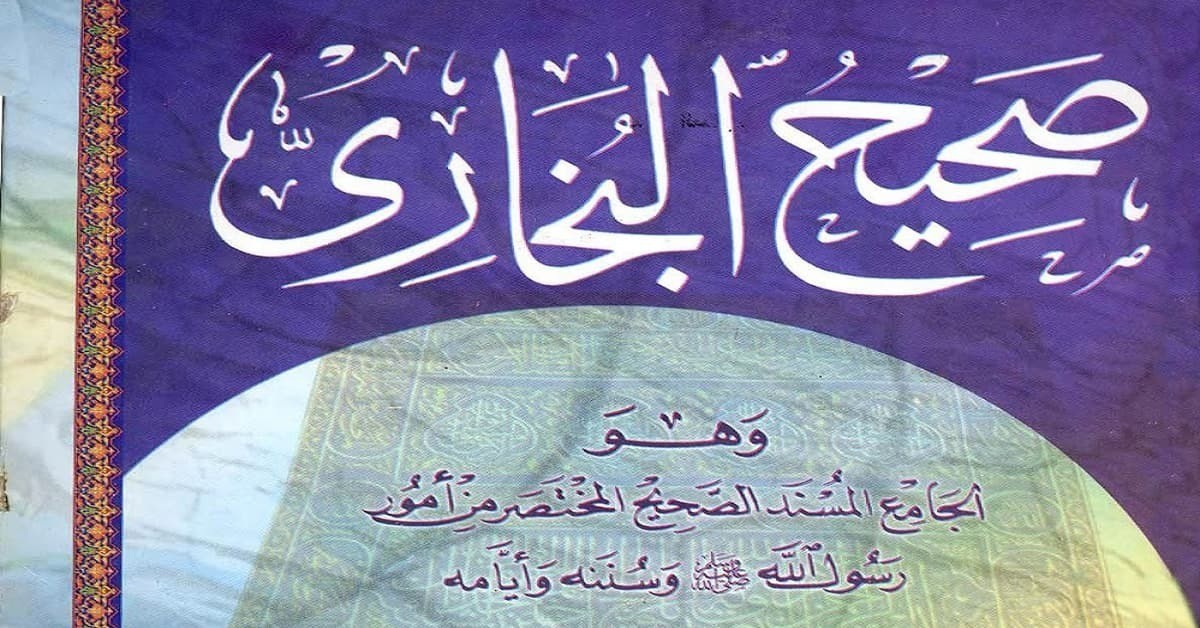 صَحِيحُ البُخَارِيِّ
وَهُوَ
الجَامِعُ المُسْنَدُ الصَّحِيحُ المُخْتَصَرُ مِنْ أُمُورِ
رَسُولِ اللَّهِ ﷺ وَسُنَنِهِ وَأَيَّامِهِ